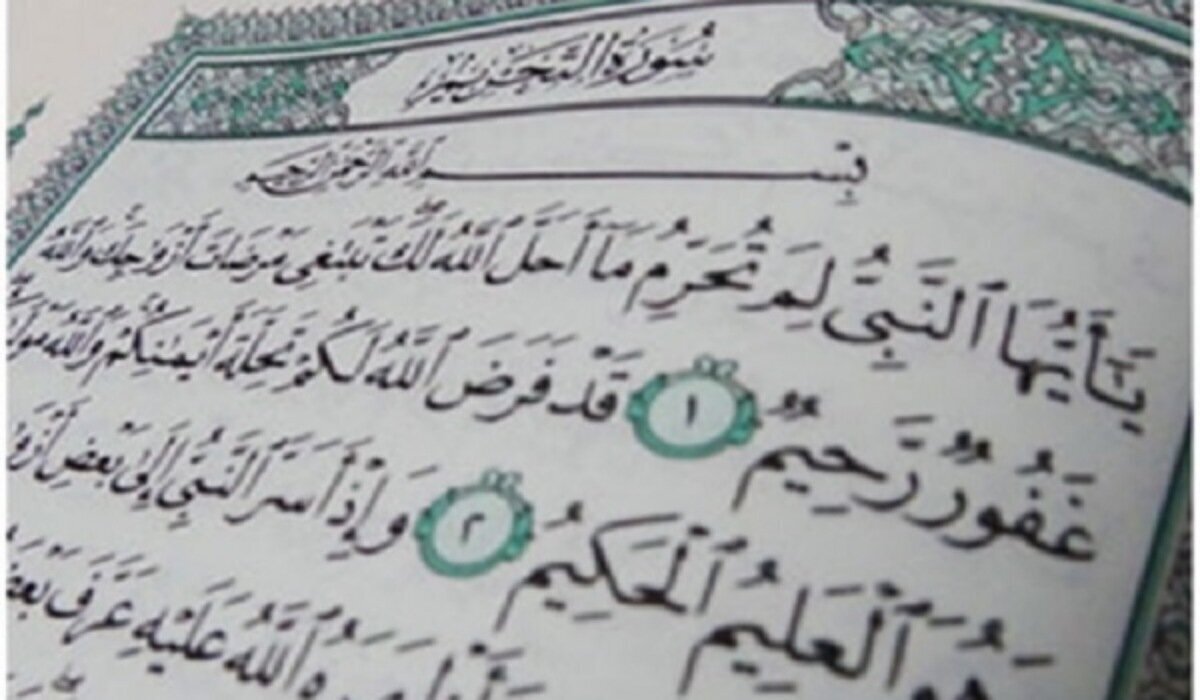 سُورَةُ التَّحْرِيمِ
بِسْمِ ٱللَّهِ ٱلرَّحْمَٰنِ ٱلرَّحِيمِ
يَٰٓأَيُّهَا ٱلنَّبِىُّ لِمَ تُحَرِّمُ مَآ أَحَلَّ ٱللَّهُ لَكَ تَبْتَغِى مَرْضَاتَ أَزْوَٰجِكَ وَٱللَّهُ
غَفُورٌ رَّحِيمٌ ١ قَدْ فَرَضَ ٱللَّهُ لَكُمْ تَحِلَّةَ أَيْمَٰنِكُمْ وَٱللَّهُ
هُوَ ٱلْعَلِيمُ ٱلْحَكِيمُ ٢ وَإِذْ أَسَرَّ ٱلنَّبِىُّ إِلَىٰ بَعْضِ
ٱللَّهُ عَلَيْهِ عَرَّفَ